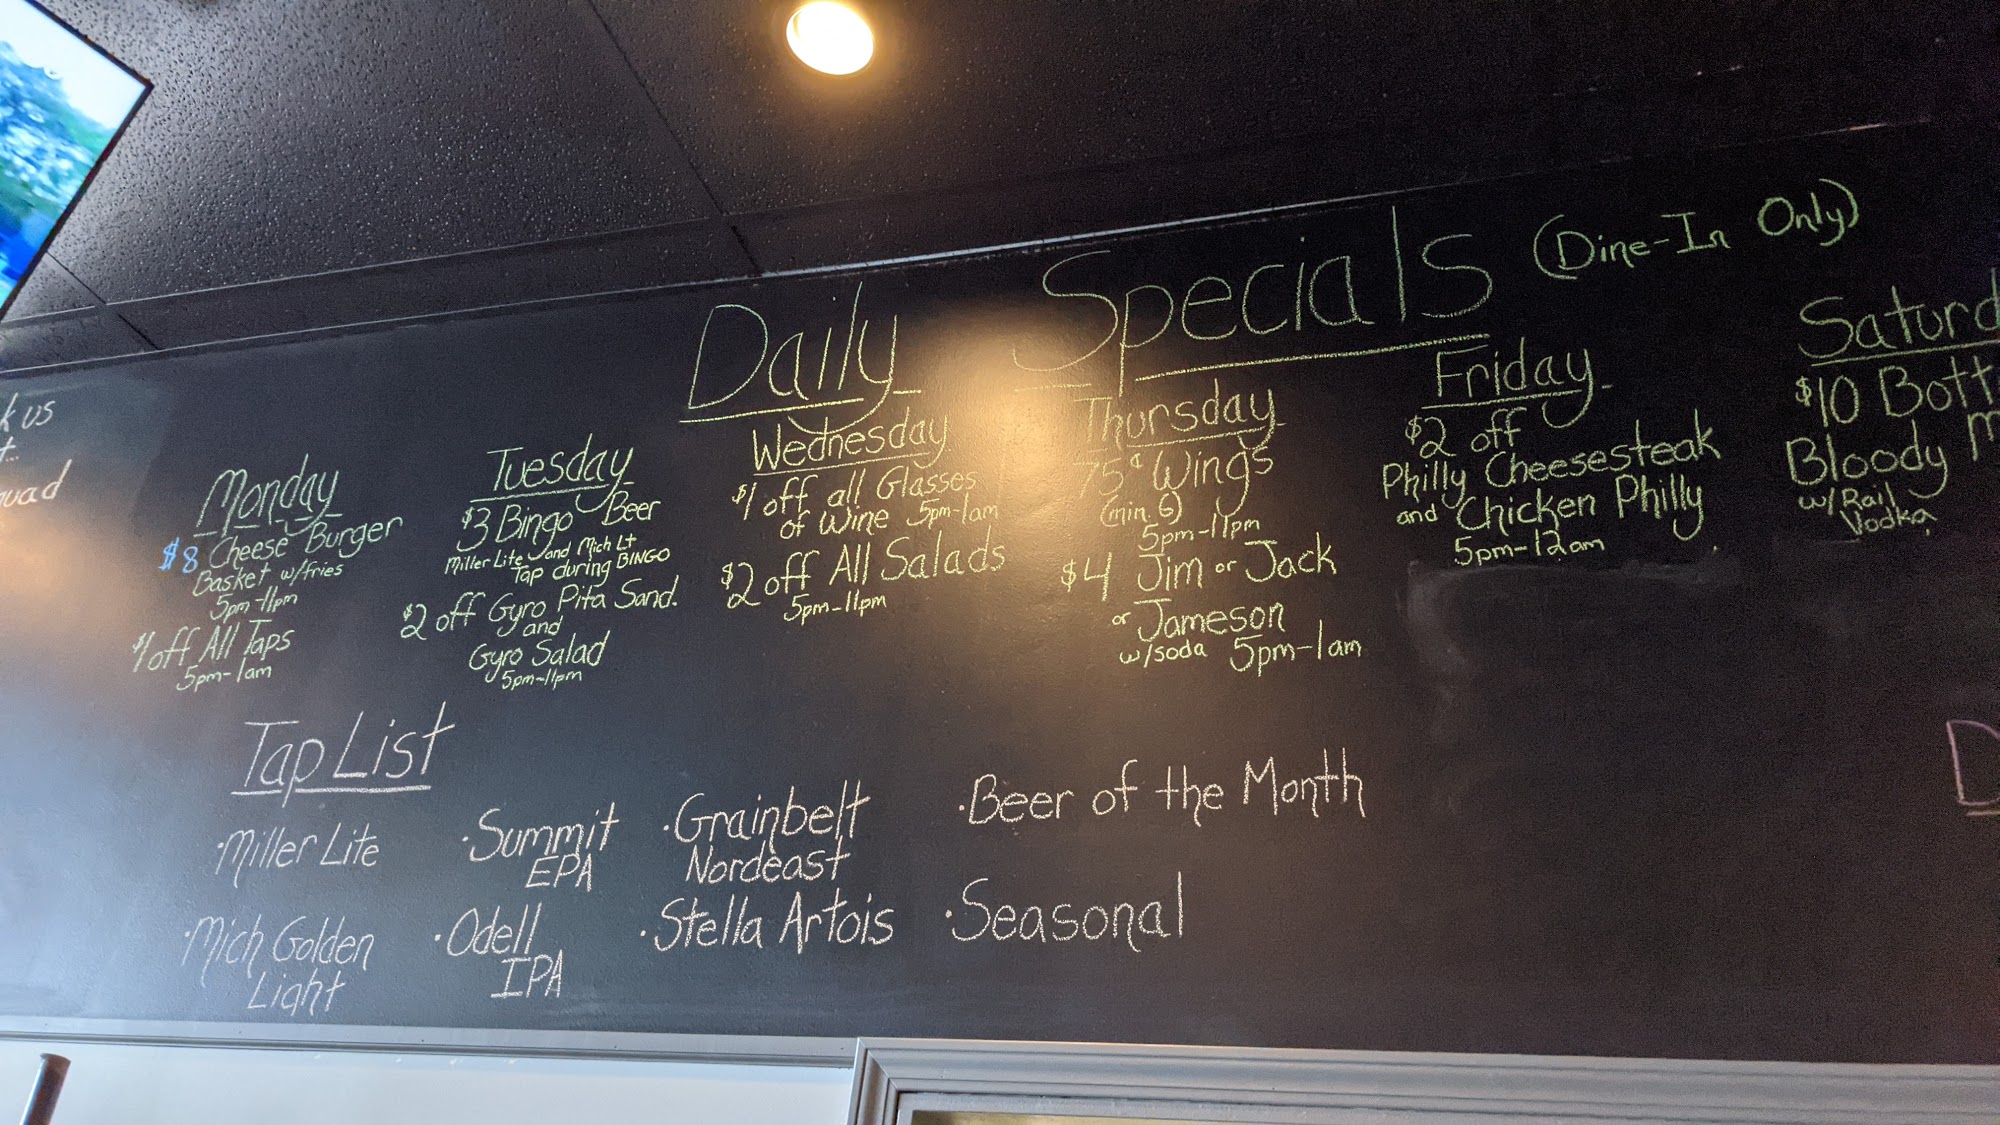 Daily Specials (Dine-In Only)
k us
uad
Monday
$8 Cheese Burger
Basket w/fries
5pm-11pm
$1 off All Taps
5pm-1am
Tuesday
$3 Bingo Beer
Miller Lite and Mich Lt
Tap during BINGO
$2 off Gyro Pita Sand.
and
Gyro Salad
5pm-11pm
Wednesday
$1 off all Glasses
of Wine 5pm-1am
$2 off All Salads
5pm-11pm
Thursday
75¢ Wings
(min. 6)
5pm-11pm
$4 Jim or Jack
or Jameson
w/soda 5pm-1am
Friday
$2 off
Philly Cheesesteak
and Chicken Philly
5pm-12am
Saturd
$10 Bott
Bloody M
w/Rail
Vodka
Tap List
·Miller Lite
·Mich Golden
Light
·Summit
EPA
·Odell
IPA
·Grainbelt
Nordeast
·Stella Artois
·Beer of the Month
·Seasonal
D